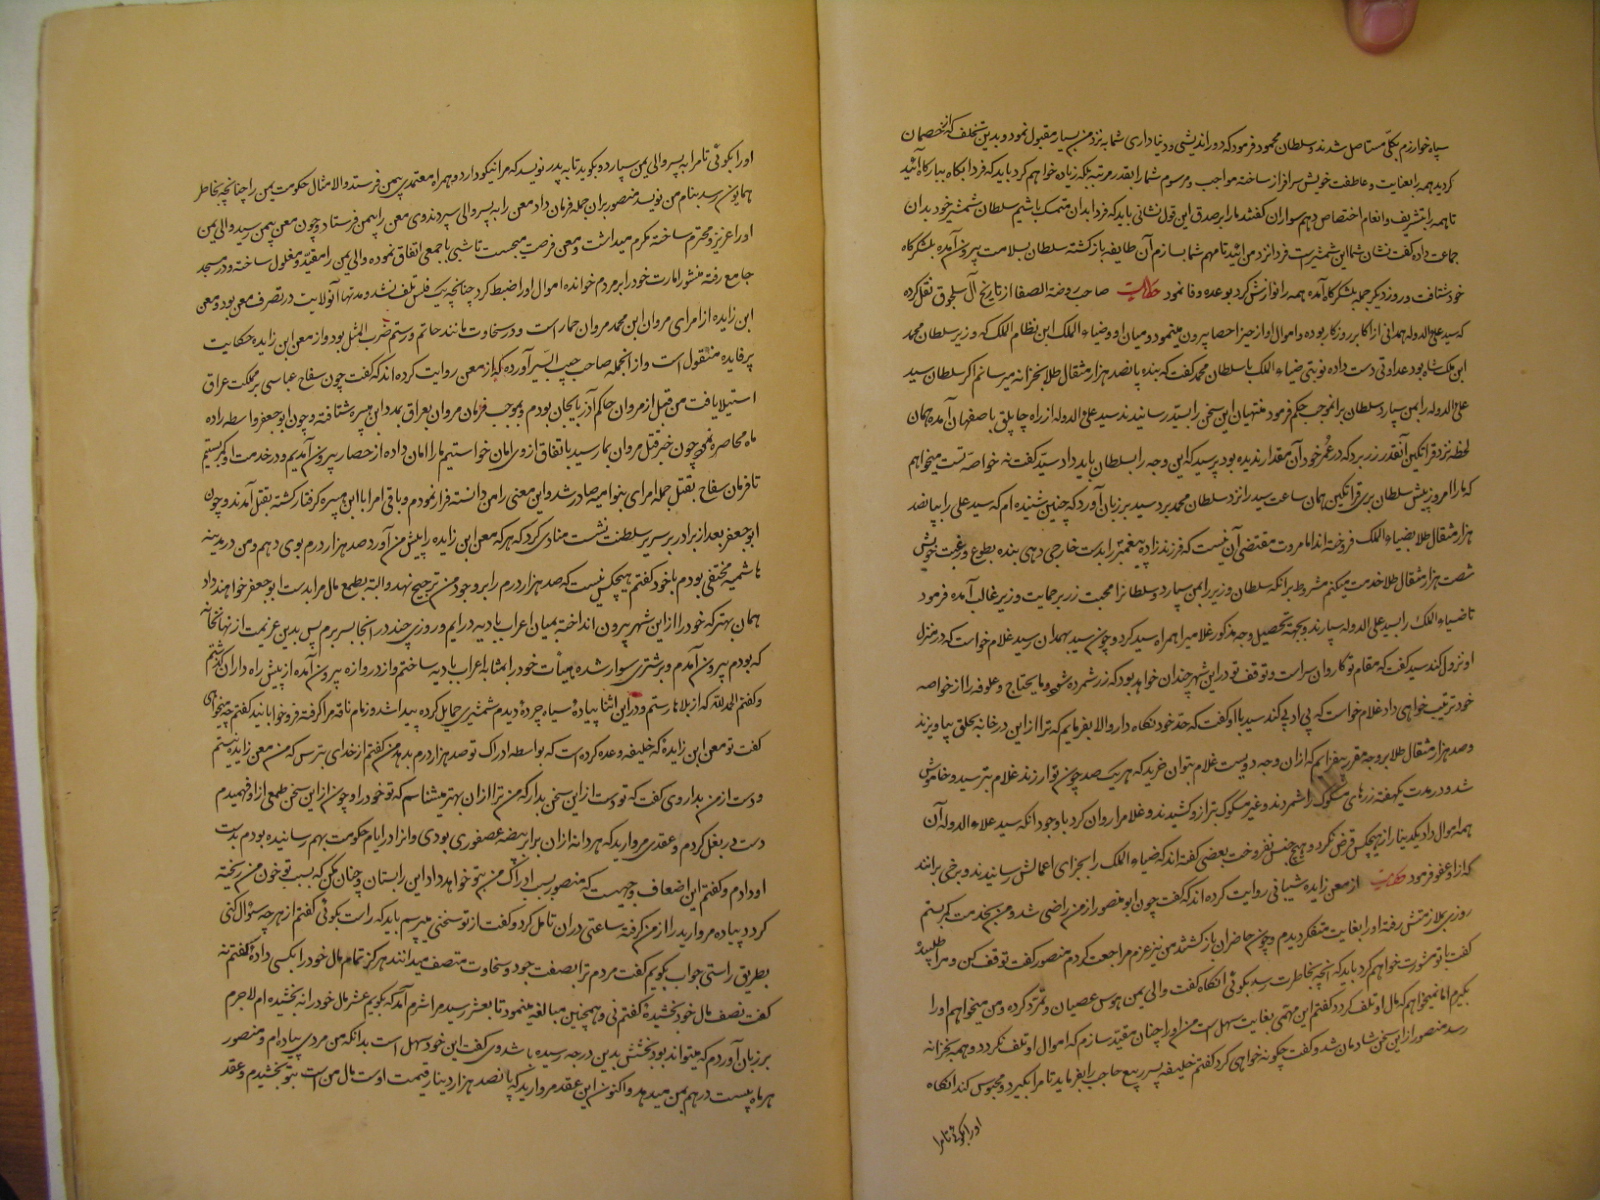 سپاه خوارزم بکلی مستاصل شدند و سلطان محمود فرمود که دوراندیشی و دنیاداری شما به نزد من بسیار مقبول نمود و بدین تخلف که از خصمان
کردید همه را بعنایت و عاطفت خویش سرافراز ساخته مواجب و مرسوم شما را بقدر مرتبه بلکه زیان خواهم کرد باید که فردا بگاه بیارگاه آئید
تا همه را بتشریف و انعام اختصاص دهم سواران گفتند ما را بر صدق این قول نشانی باید که فردا بدان متمسک باشیم سلطان شمشیر خود بدان
جماعت داده گفت نشان شما این شمشیرست فردا نزد من آئید تا مهم شما بسازم آن طایفه بازگشته سلطان بسلامت بیرون آمده بلشکرگاه
خود شتافت و روز دیگر جمله بلشکرگاه آمده همه را نوازش کرد بوعده وفا نمود حکایت صاحب روضة الصفا از تاریخ آل سلجوق نقل کرده
که سید علاءالدوله همدانی از اکابر روزگار بوده و اموال او از حیز احصا بیرون مینمود و میان او و ضیاء الملک ابن نظام الملک که وزیر سلطان محمد
ابن ملکشاه بود عداوتی دست داده نوبتی ضیاء الملک با سلطان محمد گفت که بنده پانصد هزار مثقال طلا بخزانه میرسانم اگر سلطان سید
علاءالدوله را بمن سپارد سلطان برانموجب حکم فرمود منهیان این سخن را بسید رسانیدند سید علاءالدوله از راه چاپلق باصفهان آمده همان
لحظه نزد قراتکین آنقدر زر برد که در عمر خود آن مقدار ندیده بود پرسید که این وجه را بسلطان باید داد سید گفت نه خواصه تست میخواهم
که ما را امروز پیش سلطان بری قراتکین همان ساعت سید را نزد سلطان محمد برد سید بر زبان آورد که چنین شنیده ام که سید علی را بپانصد
هزار مثقال طلا بضیاء الملک فروخته اند اما مروت مقتضی آن نیست که فرزندزاده پیغمبر را بدست خارجی دهی بنده بطوع و رغبت خویش
شصت هزار مثقال طلا خدمت میکنم مشروط برانکه سلطان وزیر را بمن سپارد و سلطانرا محبت زر بر حمایت وزیر غالب آمده فرمود
تا ضیاء الملک را بسید علی الدوله سپارند و بجهته تحصیل وجه مذکور غلامیرا همراه سید کرد و چون سید بهمدان رسید غلام خواست که در منزل
او نزول کند سید گفت که مقام تو کاروان سراست و توقف تو در این شهر چندان خواهد بود که زر شمرده شود و مایحتاج و علوفه را از خواصه
خود ترتیب خواهی داد غلام خواست که بی ادبی کند سید با او گفت که حد خود نگاه دار والا بفرمایم که ترا از این در خانه بحلق بیاویزند
و صد هزار مثقال طلا بر وجه مقرر بیفزایم که از ان وجه دویست غلام بتوان خرید که هر یک صد چون تو ارزند غلام بترسید و خاموش
شد و در مدت یکهفته زرهای مسکوک را شمردند و غیر مسکوک بترازو کشیدند و غلام را روان کرد با وجود انکه سید علاء الدوله آن
همه اموال داد یکدینار از هیچکس قرض نکرد و هیچ جنس نفروخت بعضی گفته اند که ضیاء الملک را بجزای اعمالش رسانیدند و برخی برانند
که از او عفو فرمود حکایت از معن زایده شیبانی روایت کرده اند که گفت چون ابو منصور از من راضی شد و من بخدمت کمر بستم
روزی بملازمتش رفته او را بغایت متفکر دیدم و چون حاضران بازگشتند من نیز عزم مراجعت کردم منصور گفت توقف کن و مرا طلبیده
گفت با تو مشورت خواهم کرد باید که آنچه بخاطرت رسد بگوئی انگاه گفت والی یمن هوس عصیان و تمرد کرده و من میخواهم او را
بگیرم اما نمیخواهم که مال او تلف گردد گفتم این مهمی بغایت سهل است من او را چنان مقید سازم که اموال او تلف نگردد و همه بخزانه
رسد منصور از این سخن شادمان شد و گفت چگونه خواهی کرد گفتم خلیفه پسر ربیع حاجب را بفرماید تا مرا بگیرد و محبوس کند انگاه
او را بگوئی تا مرا
او را بگوئی تا مرا به پسر والی یمن سپارد و بگوید تا به پدر نویسد که مرا نیکو دارد و همراه معتمدی بیمن فرستد والا مثال حکومت یمن را چنانچه بخاطر
همایون رسد بنام من نویسد منصور بران جمله فرمان داد معن را به پسر والی سپردند وی معن را بیمن فرستاد و چون معن بیمن رسید والی یمن
او را عزیز و محترم ساخته مکرم میداشت و معن فرصت میجست تا شبی با جمعی اتفاق نموده والی یمن را مقید و مغلول ساخته و در مسجد
جامع رفته منشور امارت خود را بر مردم خوانده اموال او را ضبط کرد چنانچه یک فلس تلف نشد و مدتها آنولایت در تصرف معن بود و معن
ابن زایده از امرای مروان ابن محمد مروان حمار است و در سخاوت مانند حاتم و رستم ضرب المثل بود و از معن ابن زایده حکایت
پر فایده منقول است و از انجمله صاحب حبیب السیر آورده که از معن روایت کرده اند که گفت چون سفاح عباسی بر مملکت عراق
استیلا یافت من قبل از مروان حاکم آذربایجان بودم و بموجب فرمان مروان بعراق بمدد ابن هبیره شتافته و چون ابو جعفر واسطه را ده
ماه محاصره نمود چون خبر قتل مروان بما رسید باتفاق از وی امان خواستیم ما را امان داده از حصار بیرون آمدیم و در خدمت او کمر بستیم
تا فرمان سفاح بقتل جمله امرای بنوامیه صادر شد و این معنی را من دانسته فرار نمودم و باقی امرا با ابن هبیره گرفتار گشته بقتل آمدند و چون
ابو جعفر بعد از برادر بر سریر سلطنت نشست منادی کرد که هر که معن ابن زایده را پیش من آورد صد هزار درم بوی دهم و من در مدینه
هاشمیه مختفی بودم با خود گفتم هیچکس نیست که صد هزار درم را بر وجود من ترجیح ننهد و البته بطمع مال مرا بدست ابو جعفر خواهند داد
همان بهتر که خود را از این شهر بیرون انداخته بمیان اعراب بادیه درایم و روزی چند در انجا بسر برم پس بدین عزیمت از نهانخانه
که بودم بیرون آمدم و بر شتری سوار شده هیأت خود را مشابه اعراب بادیه ساختم و از دروازه بیرون آمده از پیش راه داران گذشتم
و گفتم الحمد لله که از بلا ها رستم و در این اثنا پیاده سیاه چرده دیدم شمشیری حمایل کرده پیدا شد و زمام ناقه مرا گرفته فرو خوابانید گفتم چه میخواهی
گفت تو معن ابن زایده که خلیفه وعده کرده است که بواسطه ادراک تو صد هزار درم بدهد من گفتم از خدای بترس که من معن زایده نیستم
و دست از من بدار وی گفت که تو دست از این سخن بدار که من ترا از ان بهتر میشناسم که تو خود را و چون از این سخن طمعی از او فهمیدم
دست در بغل کردم و عقدی مروارید که هر دانه از ان برابر بیضه عصفوری بودی و انرا در ایام حکومت بهم رسانیده بودم بدست
او دادم و گفتم این اضعاف وجهیست که منصور بسبب ادراک من بتو خواهد داد این را بستان و چنان مکن که بسبب تو خون من ریخته
گردد پیاده مروارید را از من گرفته ساعتی دران تامل کرد و گفت از تو سخنی میپرسم باید که راست بگوئی گفتم از هر چه سؤال کنی
بطریق راستی جواب بگویم گفت مردم ترا بصفت جود و سخاوت متصف میدانند هرگز تمام مال خود را بکسی داده گفتم نه
گفت نصف مال خود بخشیده گفتم نی و همچنین مبالغه مینمود تا بعشر رسید مرا شرم آمد که بگویم عشر مال خود را نه بخشیده ام لاجرم
بر زبان آوردم که میتواند بود بخشش بدین درجه رسیده باشد وی گفت این خود سهل است بدانکه من مردی پیاده ام و منصور
هر ماه بیست درهم بمن میدهد و اکنون این عقد مروارید که پانصد هزار دینار قیمت اوست مال من است بتو بخشیدم و عقد